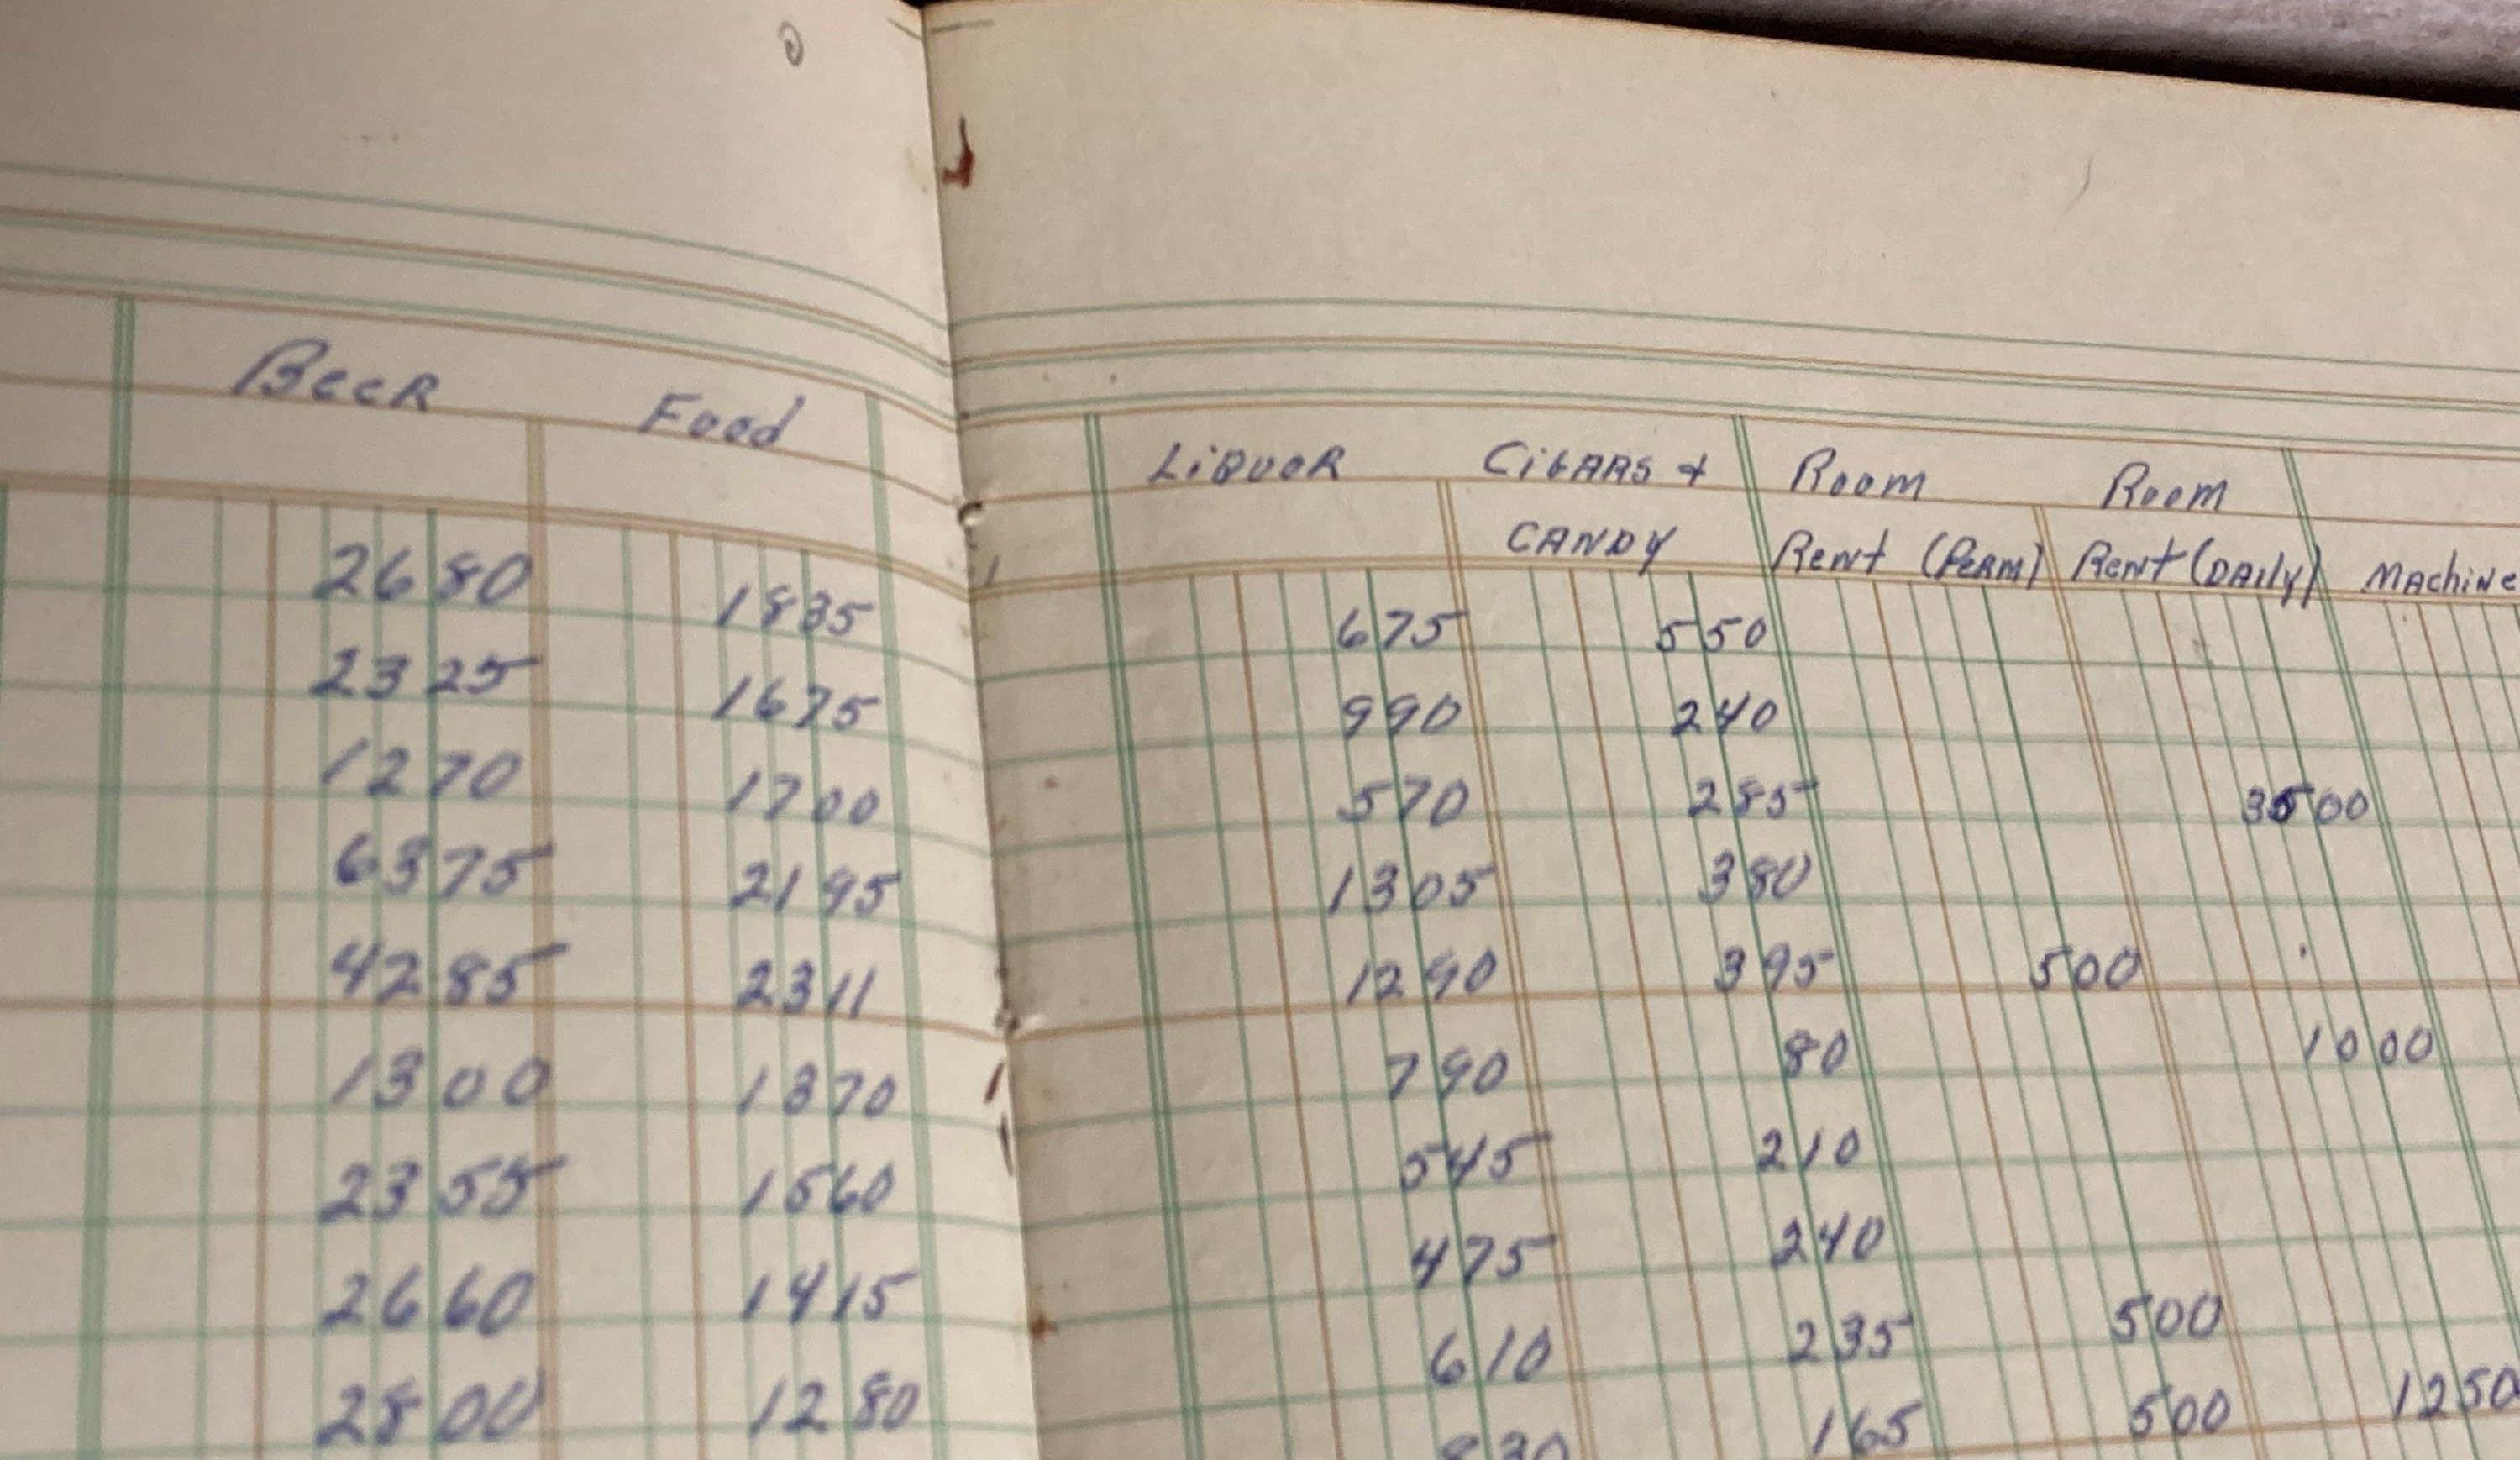 Beer Food Liquor Cigars & Room Room
Candy Rent (Perm) Rent (Daily) Machine
2680 1835 675 550
2325 1675 990 240
1270 1700 570 285 3500
6375 2195 1305 380
4285 2311 1290 395 500
1300 1370 790 80 1000
2355 1560 545 210
2660 1415 475 240
2800 1280 610 235 500
165 500 1250